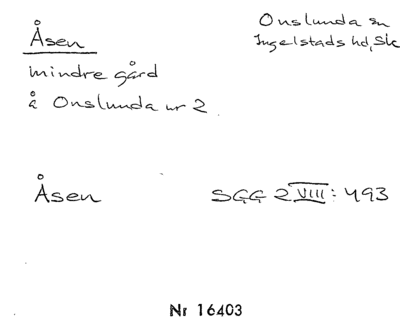 Åsen
Onslunda sn
Ingelstads hd, Sk
mindre gård
å Onslunda nr 2
Åsen
SGG 2 VIII: 493
Nr 16403